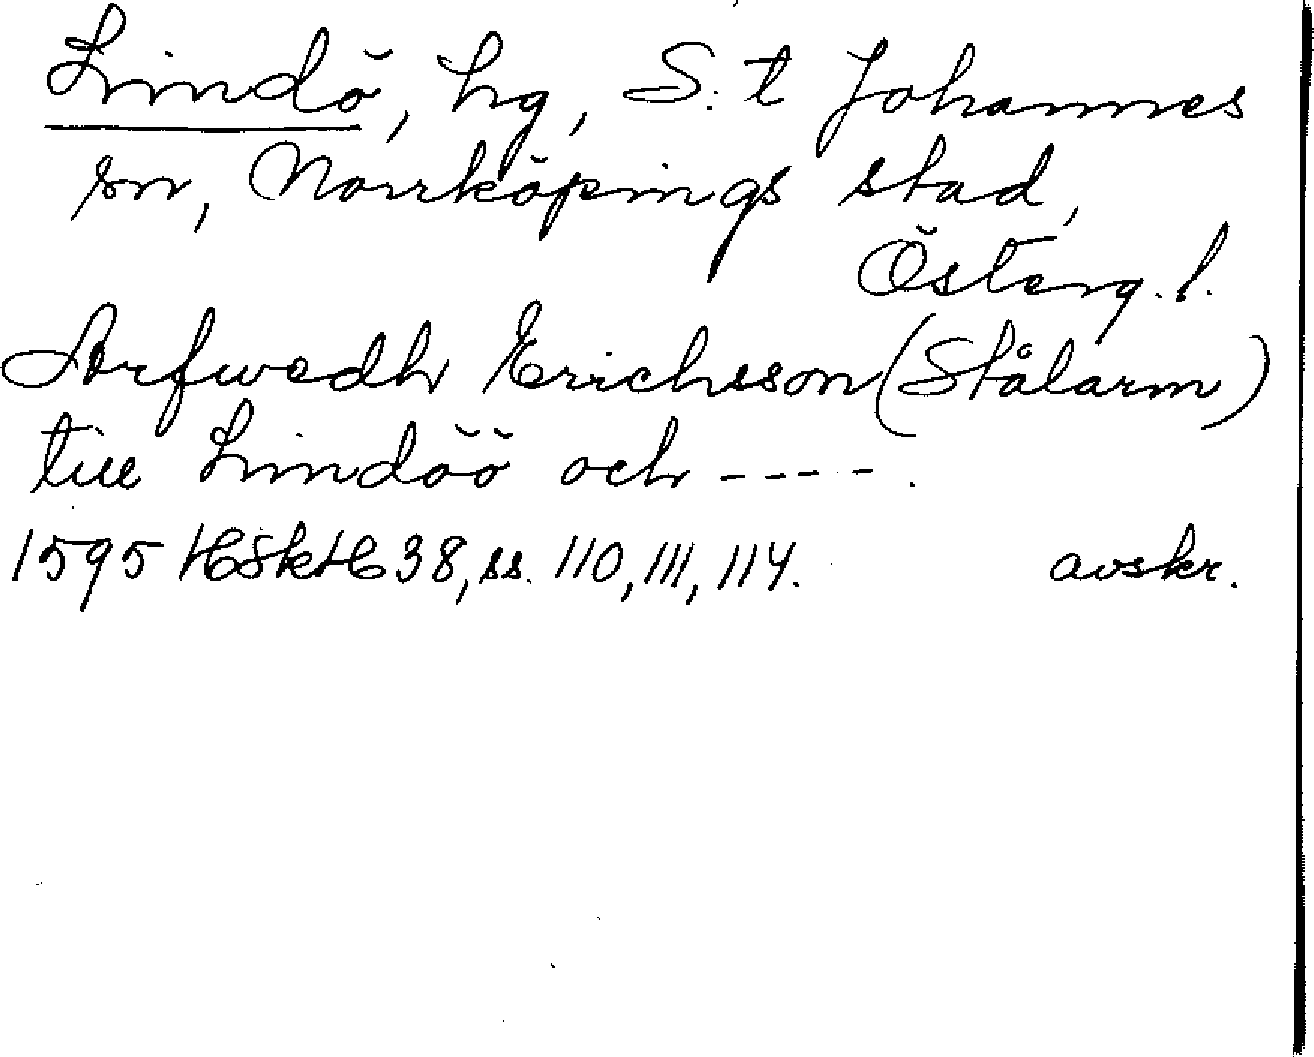 Lindö, hg, S:t Johannes
sn, Norrköpings stad,
Österg. l.
Arfwedh Erichsson (Stålarm)
till Lindöö och ----.
1595 HSkH 38, ss. 110, 111, 114. avskr.